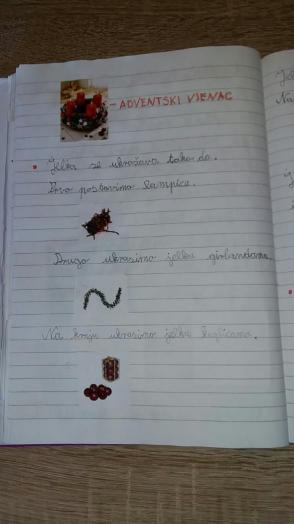 - ADVENTSKI VIENAC
Jelka se ukrašava tako da.
Prvo postavimo lampice.
Drugo ukrasimo jelku girlandama.
Na kraju ukrasimo jelku kuglicama.
Na